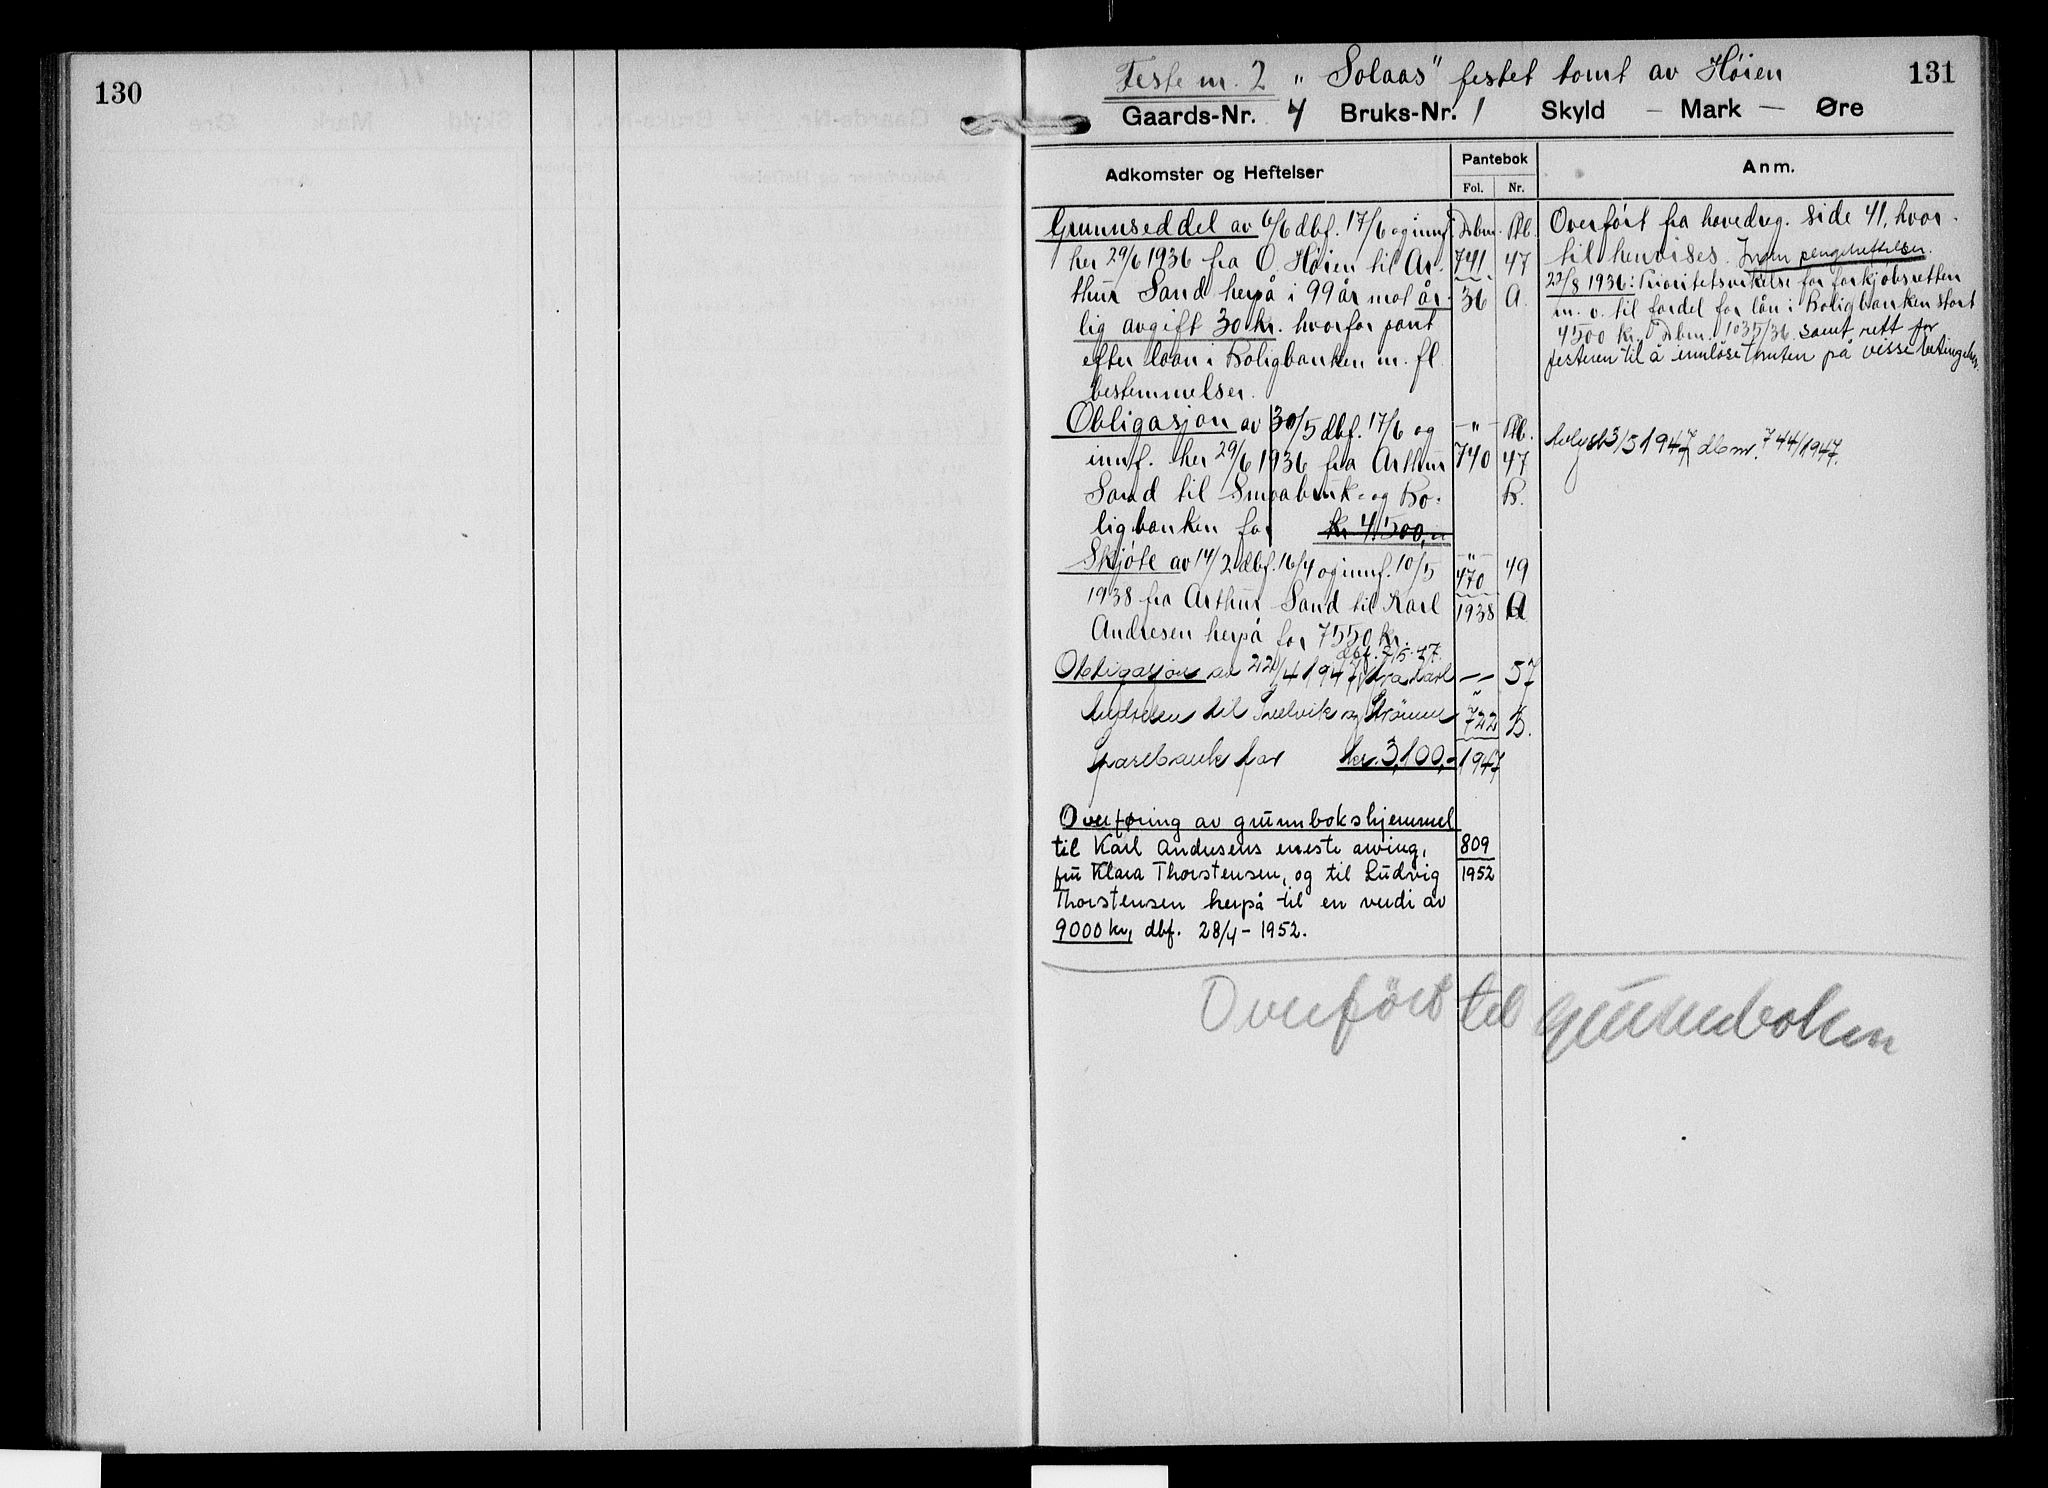 130
131
Feste nr. 2 "Solaas" festet tomt av Høien
Gaards-Nr. 4 Bruks-Nr. 1 Skyld — Mark — Øre
Adkomster og Heftelser
Pantebok
Fol. Nr.
Anm.
Grunnseddel av 6/6 dbf. 17/6 og innf.
her 29/6 1936 fra O. Høien til Ar-
thur Sand herpå i 99 år mot år-
lig avgift 30 kr. hvorfor pant
efter laan i Boligbanken m. fl.
bestemmelser.
Dbnr. Pb.
741 47
36 A.
Overført fra hovedreg. side 41, hvor-
til henvises. Ingen pengeheftelser.
22/8 1936: Prioritetsvikelse for forkjøbsretten
m. v. til fordel for lån i Boligbanken stort
4500 kr. Dbnr. 1035/36 samt rett for
festeren til å innløse tomten på visse betingelser.
Obligasjon av 30/5 dbf. 17/6 og
innf. her 29/6 1936 fra Arthur
Sand til Småbruk- og Bo-
ligbanken for kr 4500,-
—"— Pb.
740 47
B.
Avlyst 3/5 1947 dbnr. 744/1947.
Skjøte av 14/2 dbf. 16/4 og innf. 10/5
1938 fra Arthur Sand til Karl
Andresen herpå for 7550 kr.
—"— 49
470
1938 A
dbf. 3/5-47.
Obligasjon av 22/4 1947 fra Karl
Andresen til Svelvik og Strømm
sparebank for kr. 3,100,-
—"— 57
722 B.
1947
Overføring av grunnbokshjemmel
til Karl Andresens eneste arving,
fru Klara Thorstensen, og til Ludvig
Thorstensen herpå til en verdi av
9000 kr, dbf. 28/4 - 1952.
809
1952
Overført til grunnboken